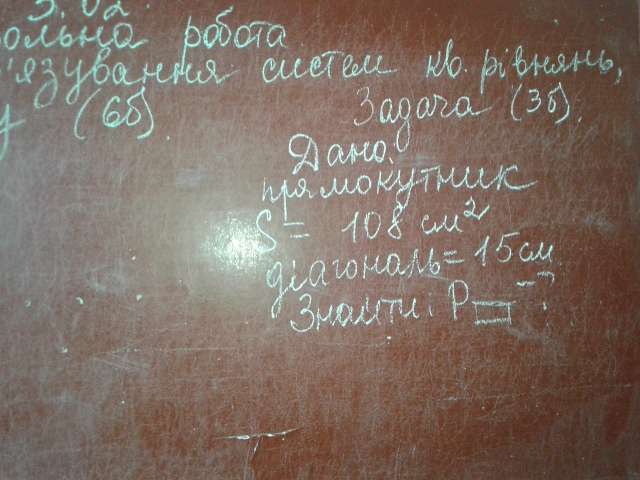 3.02.
ольна робота
'язування систем кв. рівнянь,
у (6б) Задача (3б).
Дано:
прямокутник
S = 108 см²
діагональ = 15 см
Знайти: P▭ - ?